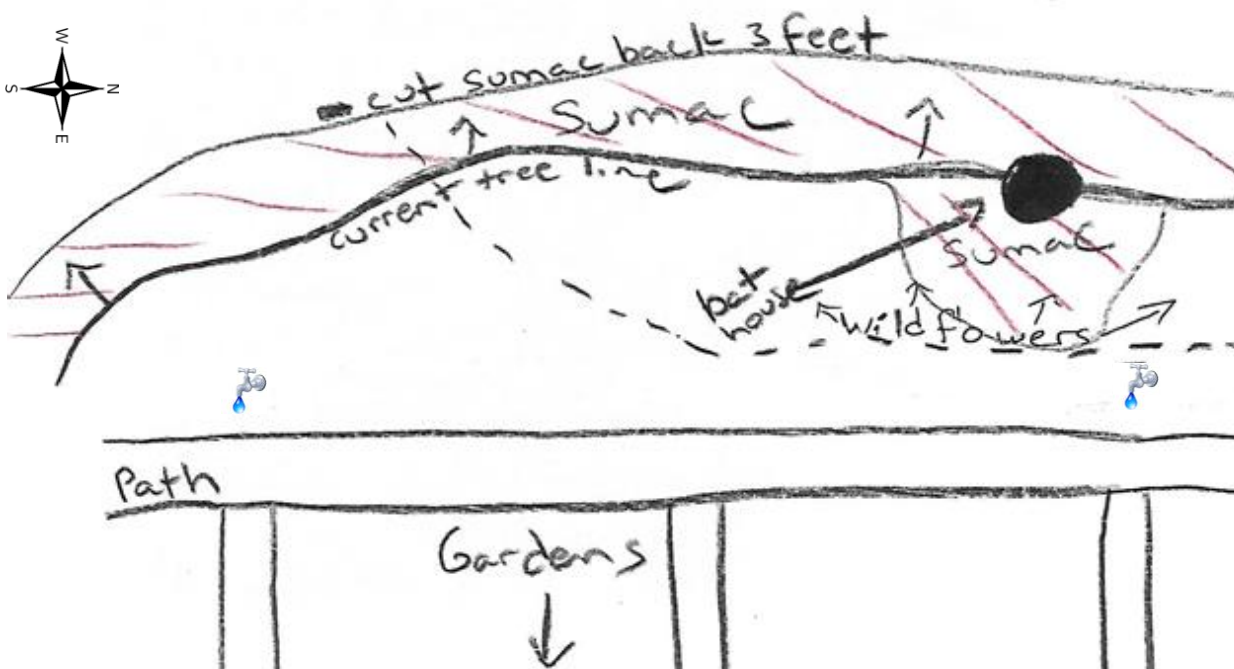 W
S
N
E
cut sumac back 3 feet
Sumac
current tree line
Sumac
bat
house
wildflowers
Path
Gardens